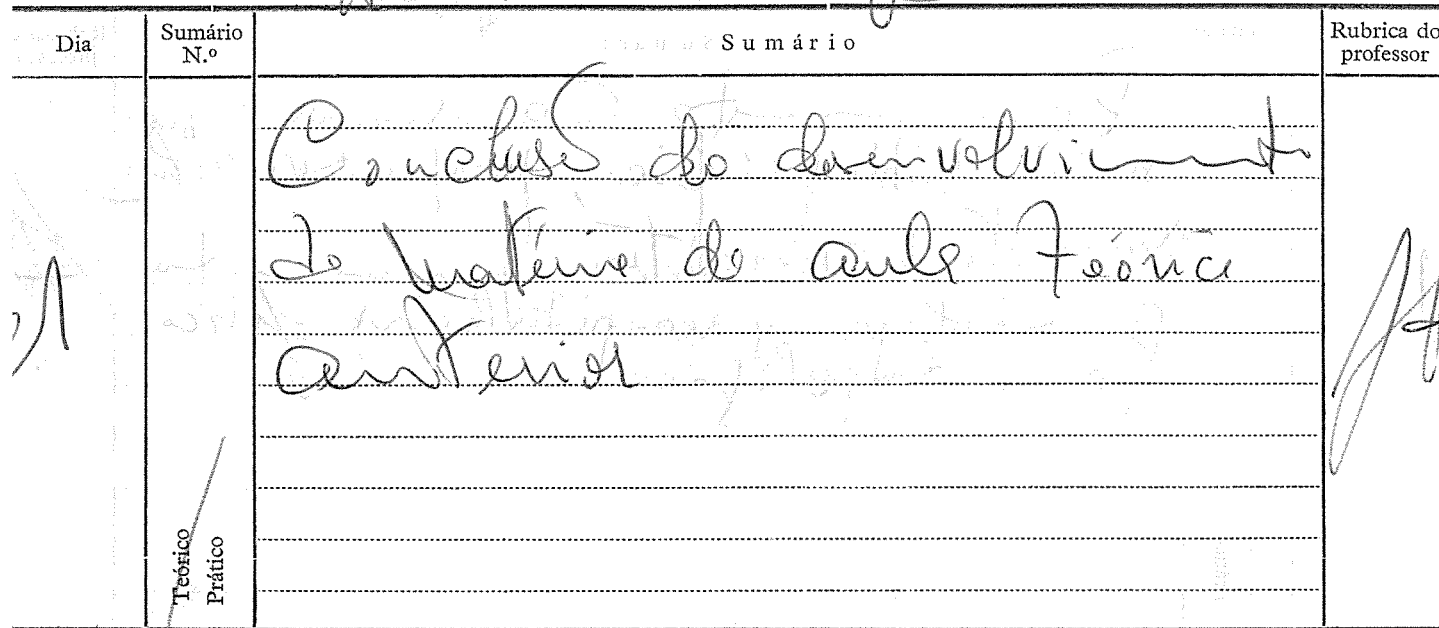 Dia
Sumário
N.º
Sumário
Rubrica do
professor
Conclusão do desenvolvimento
da matéria da aula Teórica
anterior
Teórico
Prático